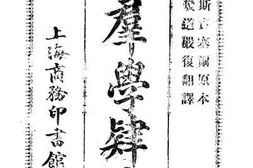 斯賓塞爾原本
幾道嚴復翻譯
羣學肄
上海商務印書館